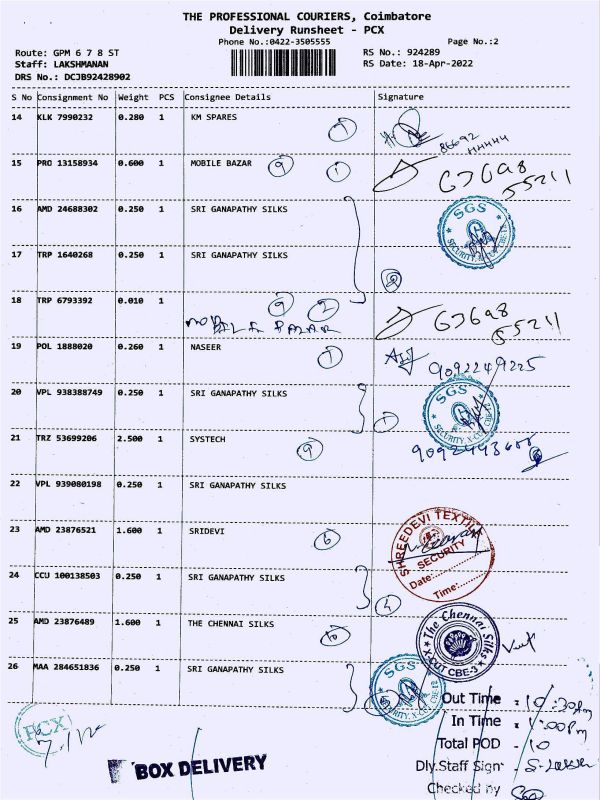 THE PROFESSIONAL COURIERS, Coimbatore
Delivery Runsheet - PCX
Phone No.:0422-3505555 Page No.:2
Route: GPM 6 7 8 ST RS No.: 924289
Staff: LAKSHMANAN RS Date: 18-Apr-2022
DRS No.: DCJB92428902
S No Consignment No Weight PCS Consignee Details Signature
14 KLK 7990232 0.280 1 KM SPARES 1
86692
15 PRO 13158934 0.600 1 MOBILE BAZAR 9 1
63698
55211
16 AMD 24688302 0.250 1 SRI GANAPATHY SILKS
SGS
SECURITY
17 TRP 1640268 0.250 1 SRI GANAPATHY SILKS
18 TRP 6793392 0.010 1 9 2
MOBILE BAZAR
63698
55211
19 POL 1888020 0.260 1 NASEER 1
9092249225
20 VPL 938388749 0.250 1 SRI GANAPATHY SILKS 1
SGS
SECURITY
21 TRZ 53699206 2.500 1 SYSTECH 9
22 VPL 939080198 0.250 1 SRI GANAPATHY SILKS
23 AMD 23876521 1.600 1 SRIDEVI 6
SHREEDEVI TEXTILE
SECURITY
Date:
Time:
24 CCU 100138503 0.250 1 SRI GANAPATHY SILKS
25 AMD 23876489 1.600 1 THE CHENNAI SILKS 10
The Chennai Silks
X-CUT CBE-3
26 MAA 284651836 0.250 1 SRI GANAPATHY SILKS
SGS
SECURITY
Out Time : 10:30Am
In Time : 1:00Pm
Total POD - 10
Dly.Staff Sign -
Checked by
PCX
BOX DELIVERY